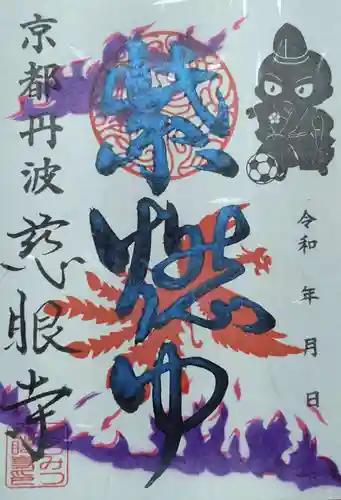 令和 年 月 日
紫燃ゆ
京都丹波 慈眼寺